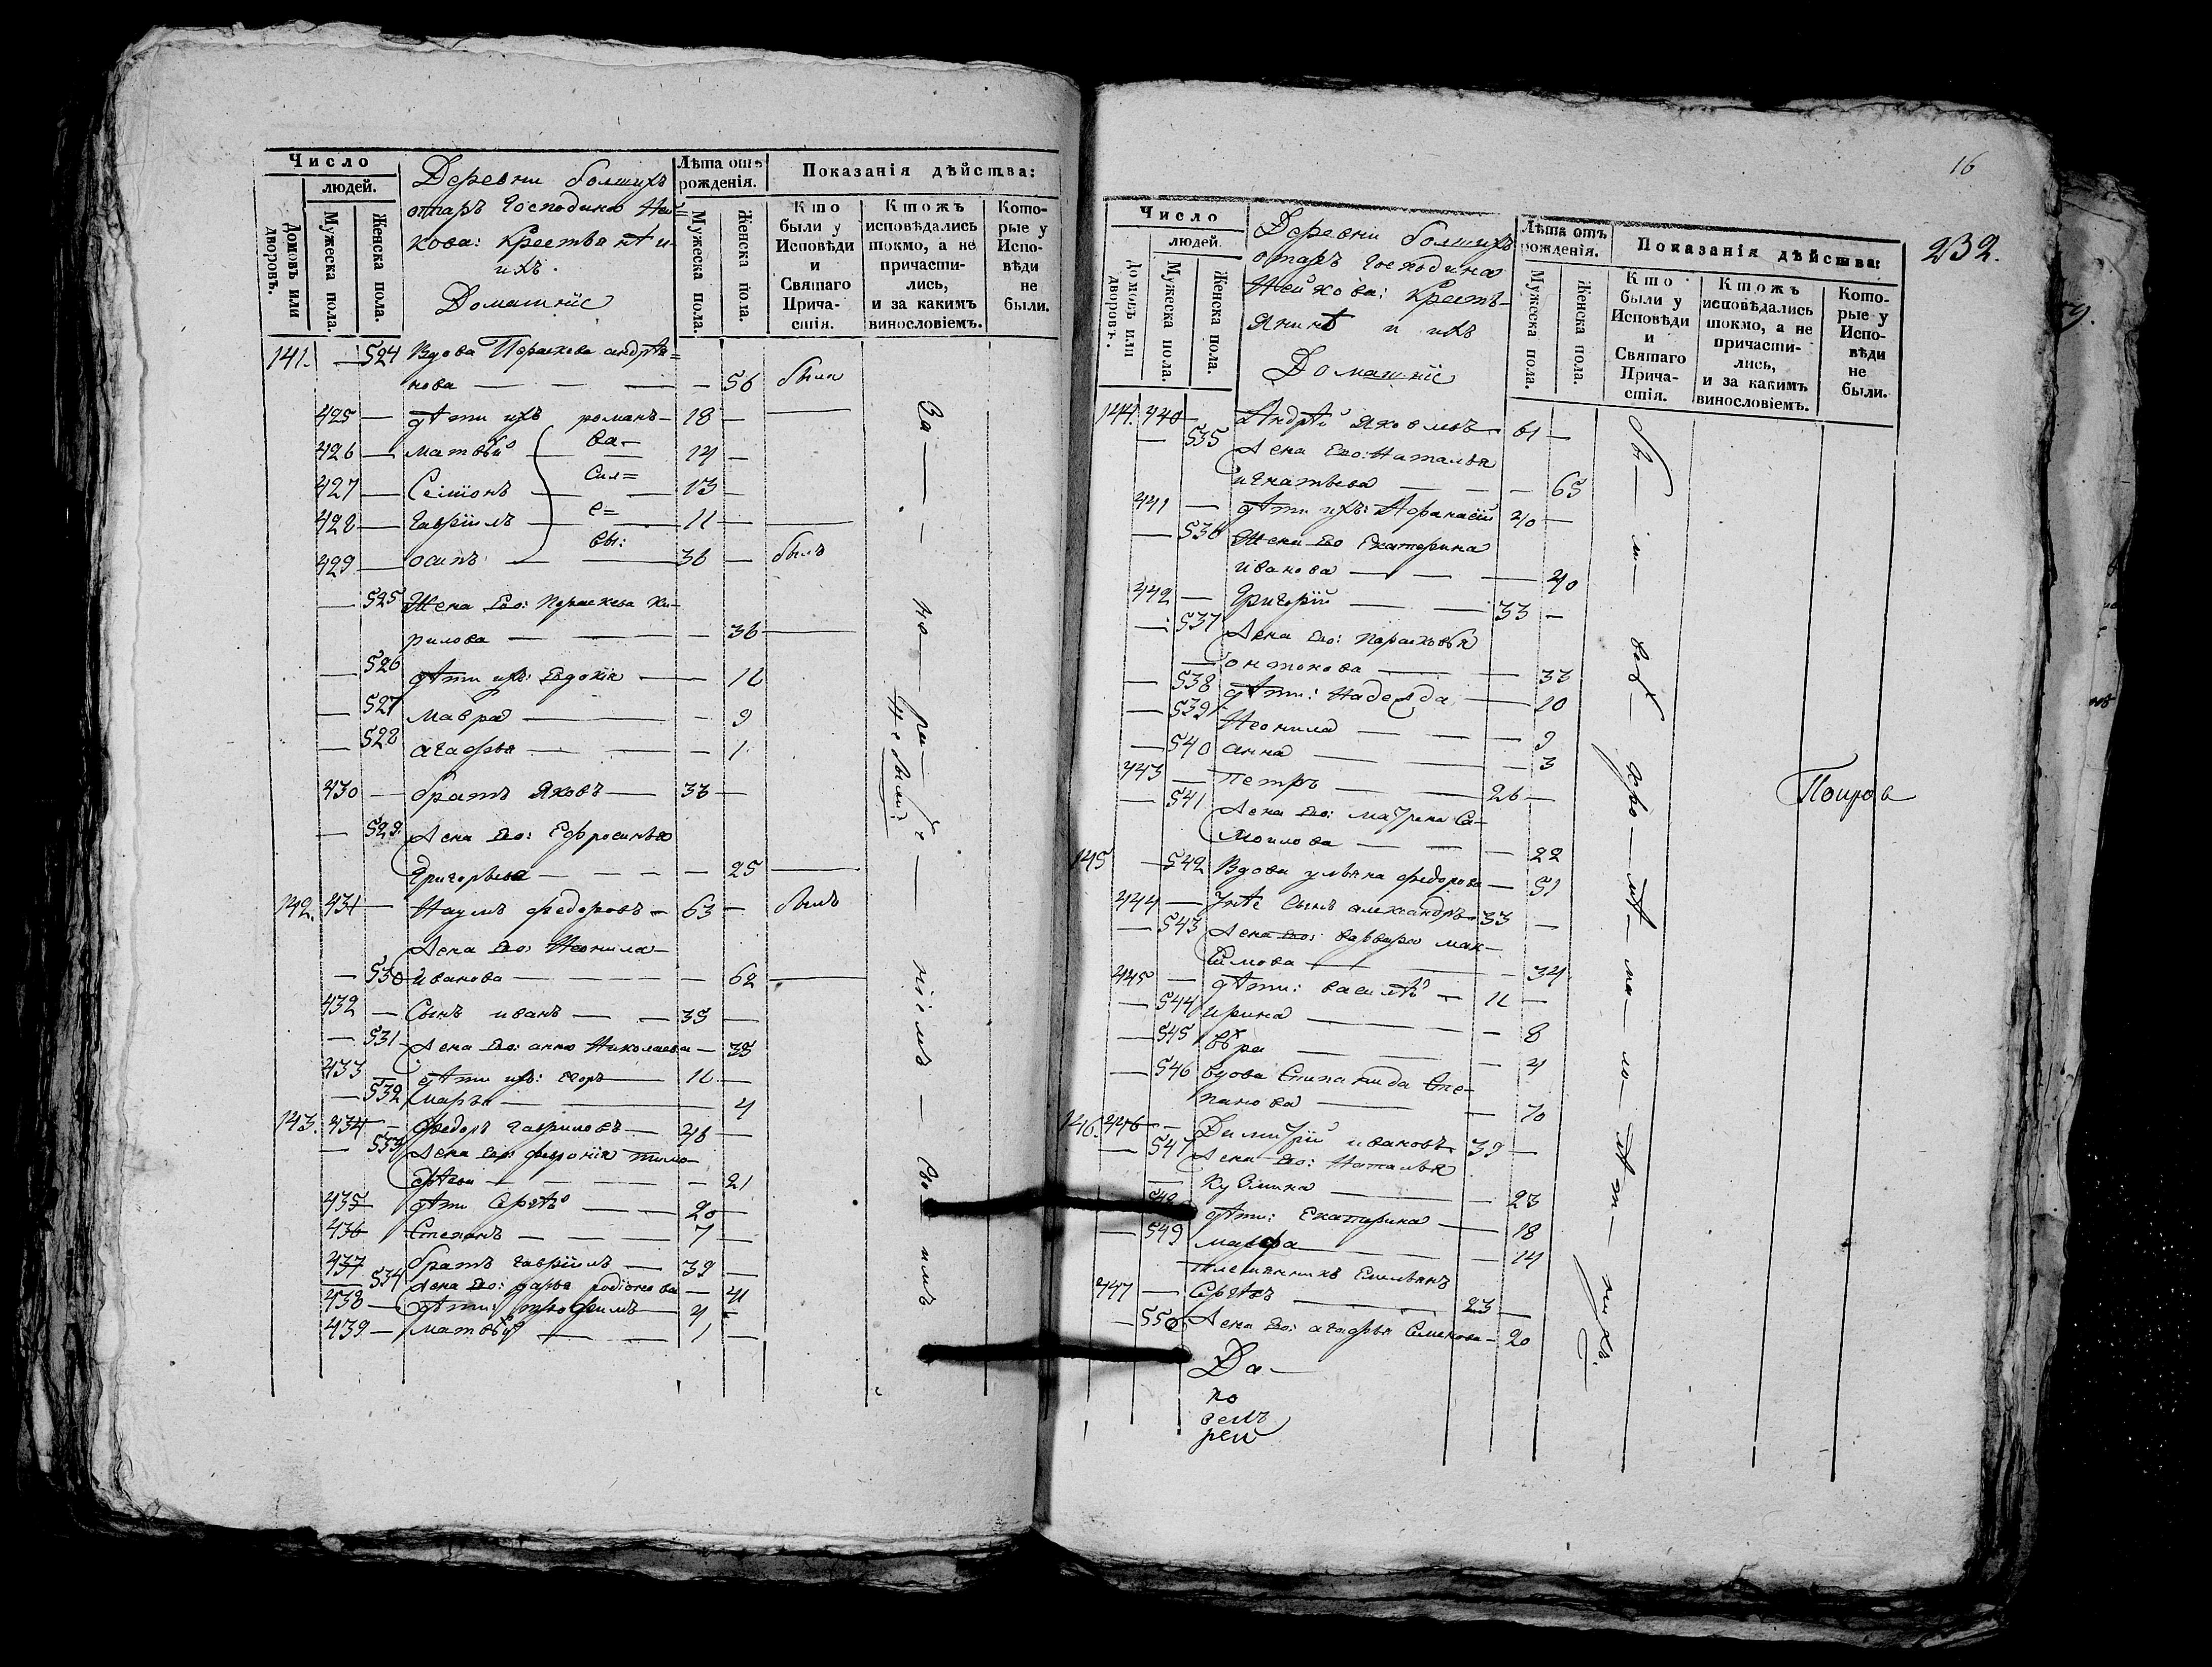 Число
людей.
Домовъ или дворовъ.
Мужеска пола.
Женска пола.
Деревни болшихъ
отаръ Господина Ней=
кова: Крестьянѣ и
ихъ.
Домашніе
Лѣта отъ рожденія.
Мужеска пола.
Женска пола.
Показанія дѣйства:
Кто были у Исповѣди и Святаго Причастія.
Ктожъ исповѣдались токмо, а не причастились, и за какимъ винословіемъ.
Которые у Исповѣди не были.
141. — 524 Вдова Параскева андрѣя=
нова — — — — 56 была
425 — дѣти ихъ романъ — 18 —
426 — Матвѣй ва— 14 —
427 — Семіонъ сил= 13 —
428 — гавріилъ е= 11 —
429 — осипъ вы: 36 — былъ
— 525 Жена Его: Параскева Ки—
рилова — — — 36
— 526 дѣти ихъ: Евдокія — 11
— 527 Мавра — — 9
— 528 агафья — — 1
430 — братъ Яковъ — 33 —
— 529 Жена Его: Ефросинья
Григорьева — — — 25
142. 431 — Наумъ федоровъ — 63 — былъ
Жена Его: Неонила —
— 530 иванова — — — 62
432 — Сынъ иванъ — 35 —
— 531 Жена Его: анна Николаева — 35
433 — дѣти ихъ: егоръ — 11 —
— 532 Марья — — 4
143. 434 — федоръ гавриловъ — 46 —
— 533 Жена Его: февронія тимо—
фѣева — — — 21
435 дѣти Сергѣй — 20 —
436 Степанъ — — 7 —
437 братъ гавріилъ — 39 —
— 534 Жена Его: дарья родіонова — 41
438 — дѣти: трофимъ — 4 —
439 — матвѣй — — 1 —
не были
16
232.
Число
людей.
Домовъ или дворовъ.
Мужеска пола.
Женска пола.
Деревни болшихъ
отаръ Господина
Нейкова: Кресть—
янинѣ и ихъ
Домашніе
Лѣта отъ рожденія.
Мужеска пола.
Женска пола.
Показанія дѣйства:
Кто были у Исповѣди и Святаго Причастія.
Ктожъ исповѣдались токмо, а не причастились, и за какимъ винословіемъ.
Которые у Исповѣди не были.
144. 440 — Андрѣй яковлевъ — 61 —
— 535 Жена Его: Наталья
игнатьева — — — 65
441 — дѣти ихъ: Афанасій 40 —
— 536 Жена Его Екатерина
иванова — — — 40
442 — Григорій — — 33 —
— 537 Жена Его: Парасковья
онтонова — — 33
— 538 дѣти: Надежда — 10
— 539 Неонила — — 9
— 540 анна — — 3
443 — петръ — — 26 —
— 541 Жена Его: матрена Са—
мойлова — — — 22
145 — 542 Вдова ульяна федорова — 51
444 — Сынъ александръ 33 —
— 543 Жена Его: варвара мак—
симова — — 34
445 — дѣти: василѣй — 11 —
— 544 ирина — — — 8
— 545 вѣра — — 4
— 546 вдова Степанида Сте—
панова — — 70
146. 446 — Димитрій ивановъ 39 —
— 547 Жена Его: Наталья
Кузмина — — 23
548 дѣти: Екатерина — 18
— 549 марфа — — 14
племянникъ Емельянъ
447 — Сергѣевъ — 23 —
— 550 Жена Его: агафья Семенова — 20